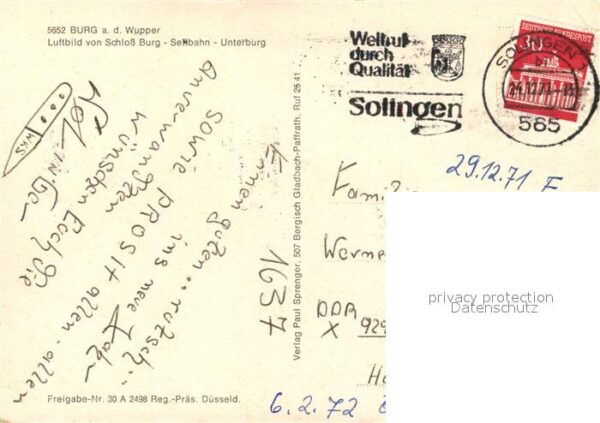 5652 BURG a. d. Wupper
Luftbild von Schloß Burg - Seilbahn - Unterburg
Einen guten "rutsch"
ins neue Jahr
sowie PROSIT allen - allen
wünschen Euch die
Anverwandten
WKS
1637
Verlag Paul Sprenger, 507 Bergisch Gladbach-Paffrath, Ruf 2541
Freigabe-Nr. 30 A 2498 Reg.-Präs. Düsseld.
Weltruf
durch
Qualität
Solingen
SOLINGEN 1
24.12.71
565
DEUTSCHE BUNDESPOST
30
29.12.71
Fami
Werne
DDR
X 929
Ha
6.2.72
privacy protection
Datenschutz